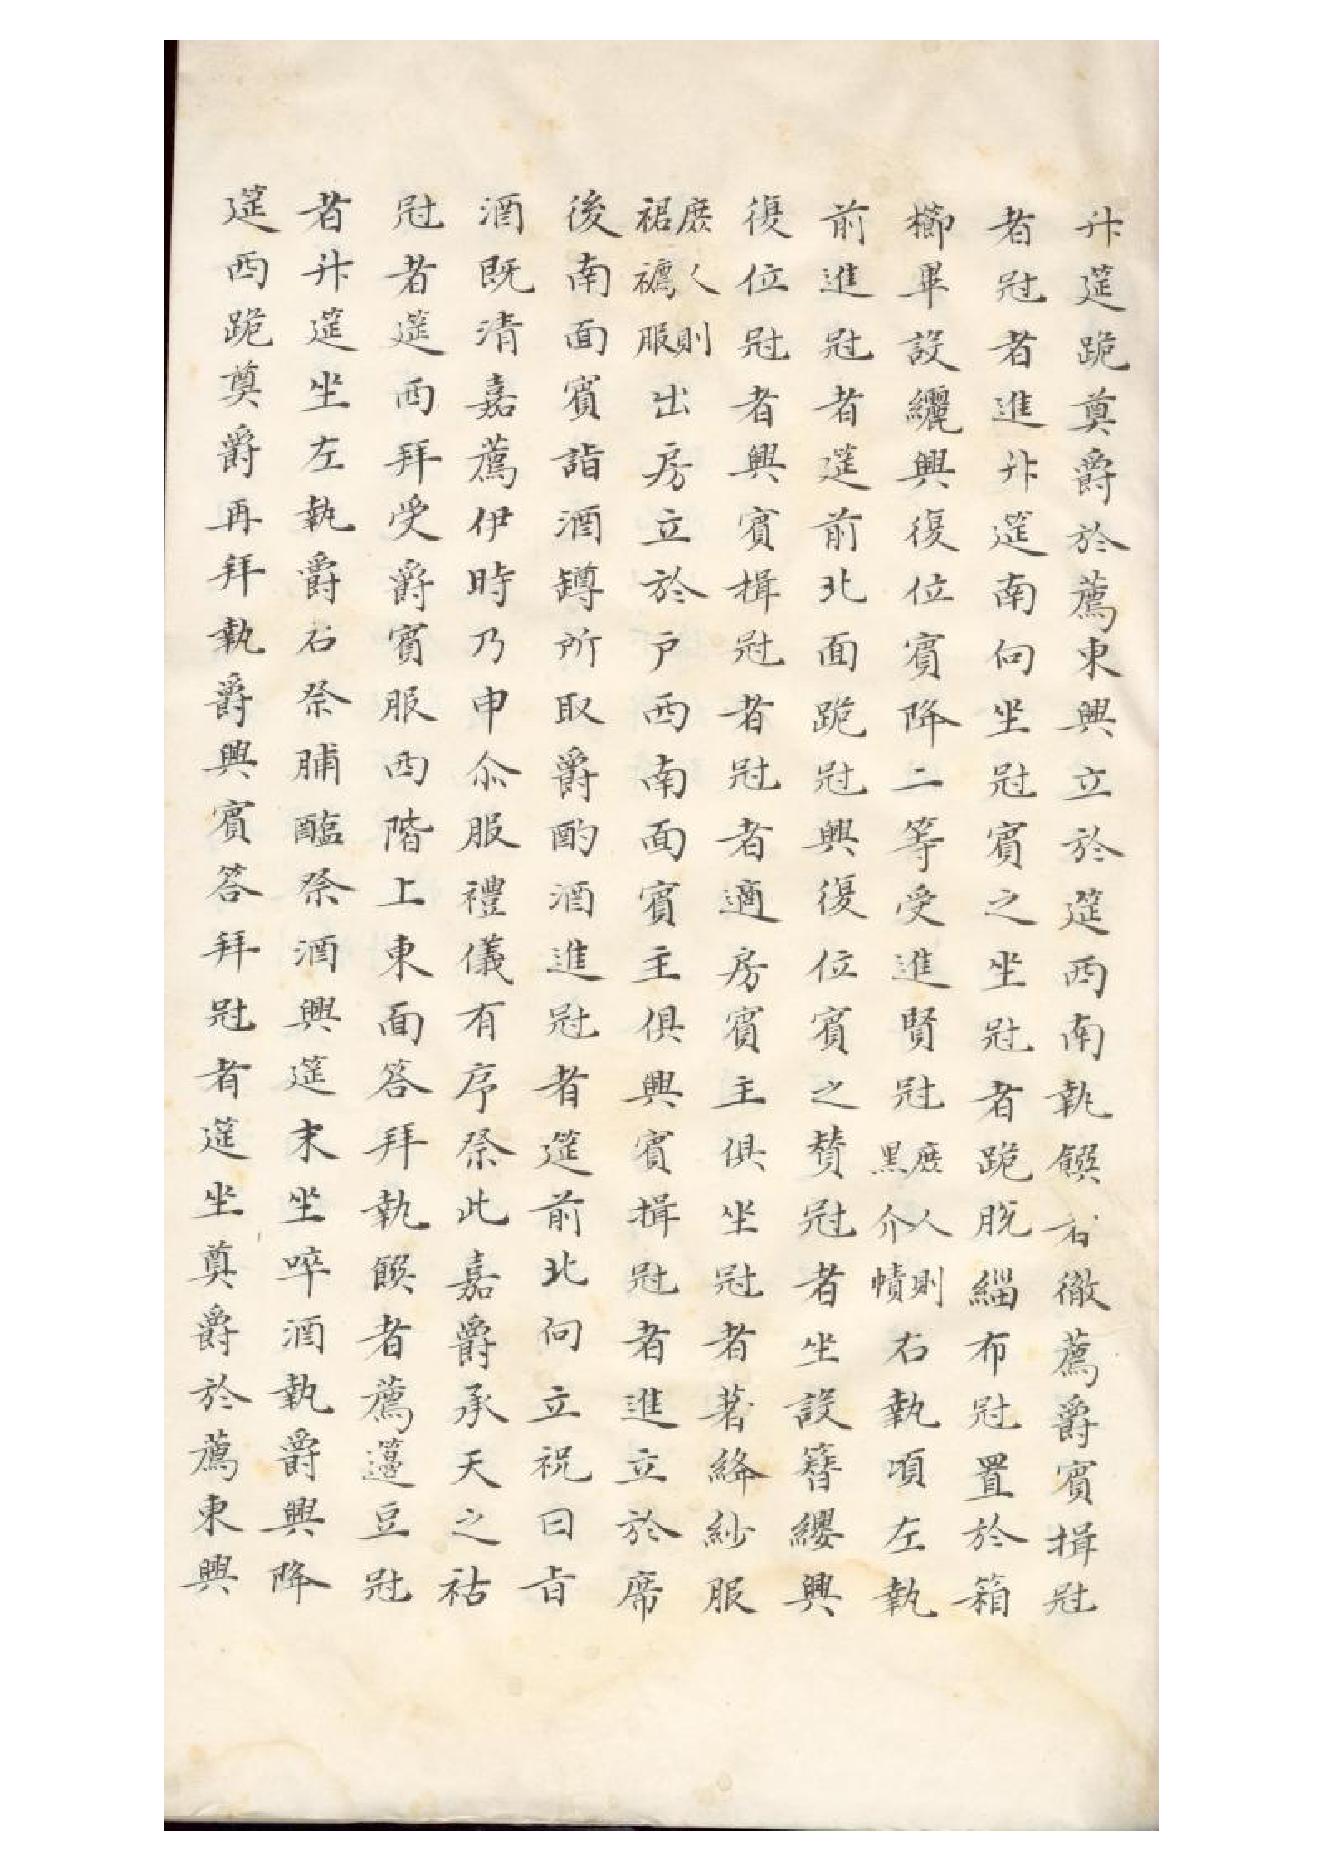 升筵跪奠爵於薦東興立於筵西南執饌者徹薦爵賓揖冠
者冠者進升筵南向坐冠賓之坐冠者跪脫緇布冠置於箱
櫛畢設纚興復位賓降二等受進賢冠庶人則黑介幘右執項左執
前進冠者筵前北面跪冠興復位賓之贊冠者坐設簪纓興
復位冠者興賓揖冠者冠者適房賓主俱坐冠者著絳紗服
庶人則裙襦服出房立於戶西南面賓主俱興賓揖冠者進立於席
後南面賓詣酒罇所取爵酌酒進冠者筵前北向立祝曰旨
酒既清嘉薦伊時乃申尒服禮儀有序祭此嘉爵承天之祜
冠者筵西拜受爵賓服西階上東面答拜執饌者薦籩豆冠
者升筵坐左執爵右祭脯醢祭酒興筵末坐啐酒執爵興降
筵西跪奠爵再拜執爵興賓答拜冠者筵坐奠爵於薦東興